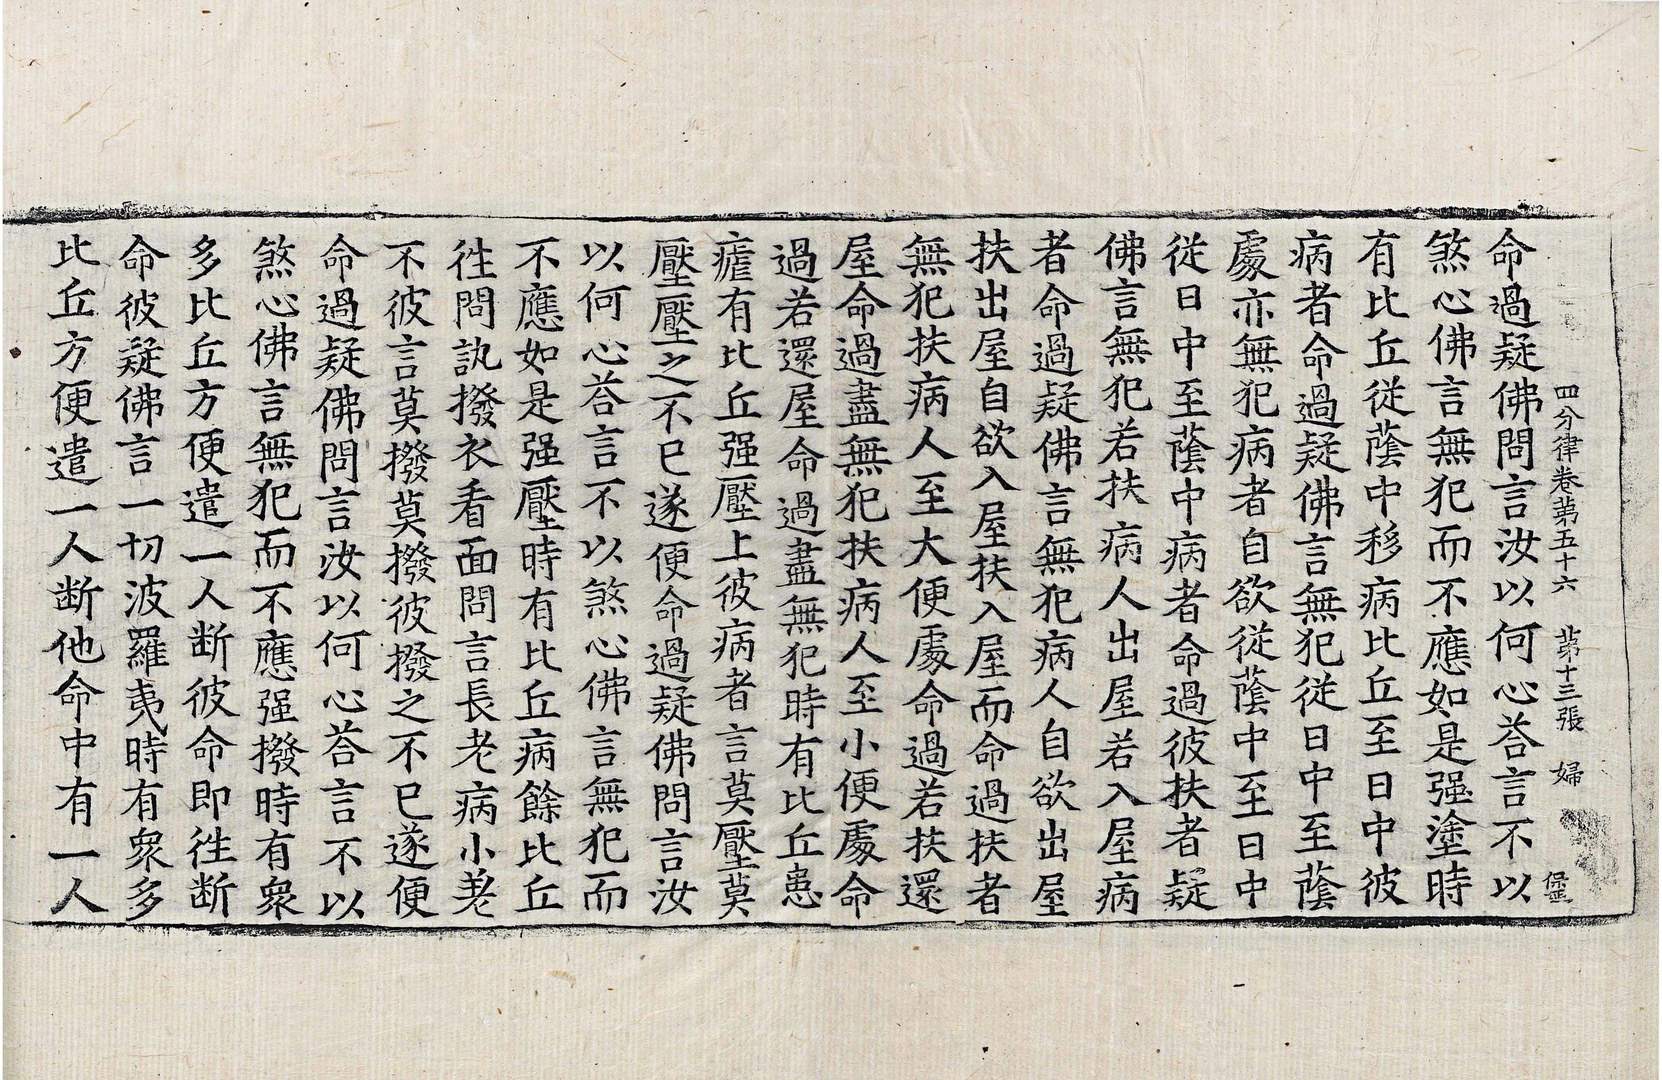 四分律卷第五十六 第十三張 婦
命過疑佛問言汝以何心荅言不以
煞心佛言無犯而不應如是强塗時
有比丘從蔭中移病比丘至日中彼
病者命過疑佛言無犯從日中至蔭
處亦無犯病者自欲從蔭中至日中
從日中至蔭中病者命過彼扶者疑
佛言無犯若扶病人出屋若入屋病
者命過疑佛言無犯病人自欲出屋
扶出屋自欲入屋扶入屋而命過扶者
無犯扶病人至大便處命過若扶還
屋命過盡無犯扶病人至小便處命
過若還屋命過盡無犯時有比丘患
瘧有比丘强壓上彼病者言莫壓莫
壓壓之不已遂便命過疑佛問言汝
以何心荅言不以煞心佛言無犯而
不應如是强壓時有比丘病餘比丘
徃問訊撥衣看面問言長老病小差
不彼言莫撥莫撥彼撥之不已遂便
命過疑佛問言汝以何心荅言不以
煞心佛言無犯而不應强撥時有衆
多比丘方便遣一人断彼命即徃断
命彼疑佛言一切波羅夷時有衆多
比丘方便遣一人断他命中有一人